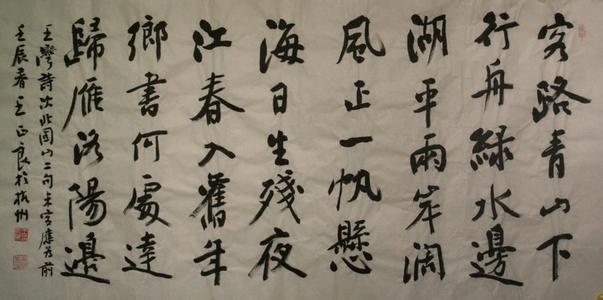 客路青山下
行舟綠水邊
湖平兩岸闊
風正一帆懸
海日生殘夜
江春入舊年
鄉書何處達
歸雁洛陽邊
王灣詩次北固山二句末字應為前
壬辰春王正良於杭州